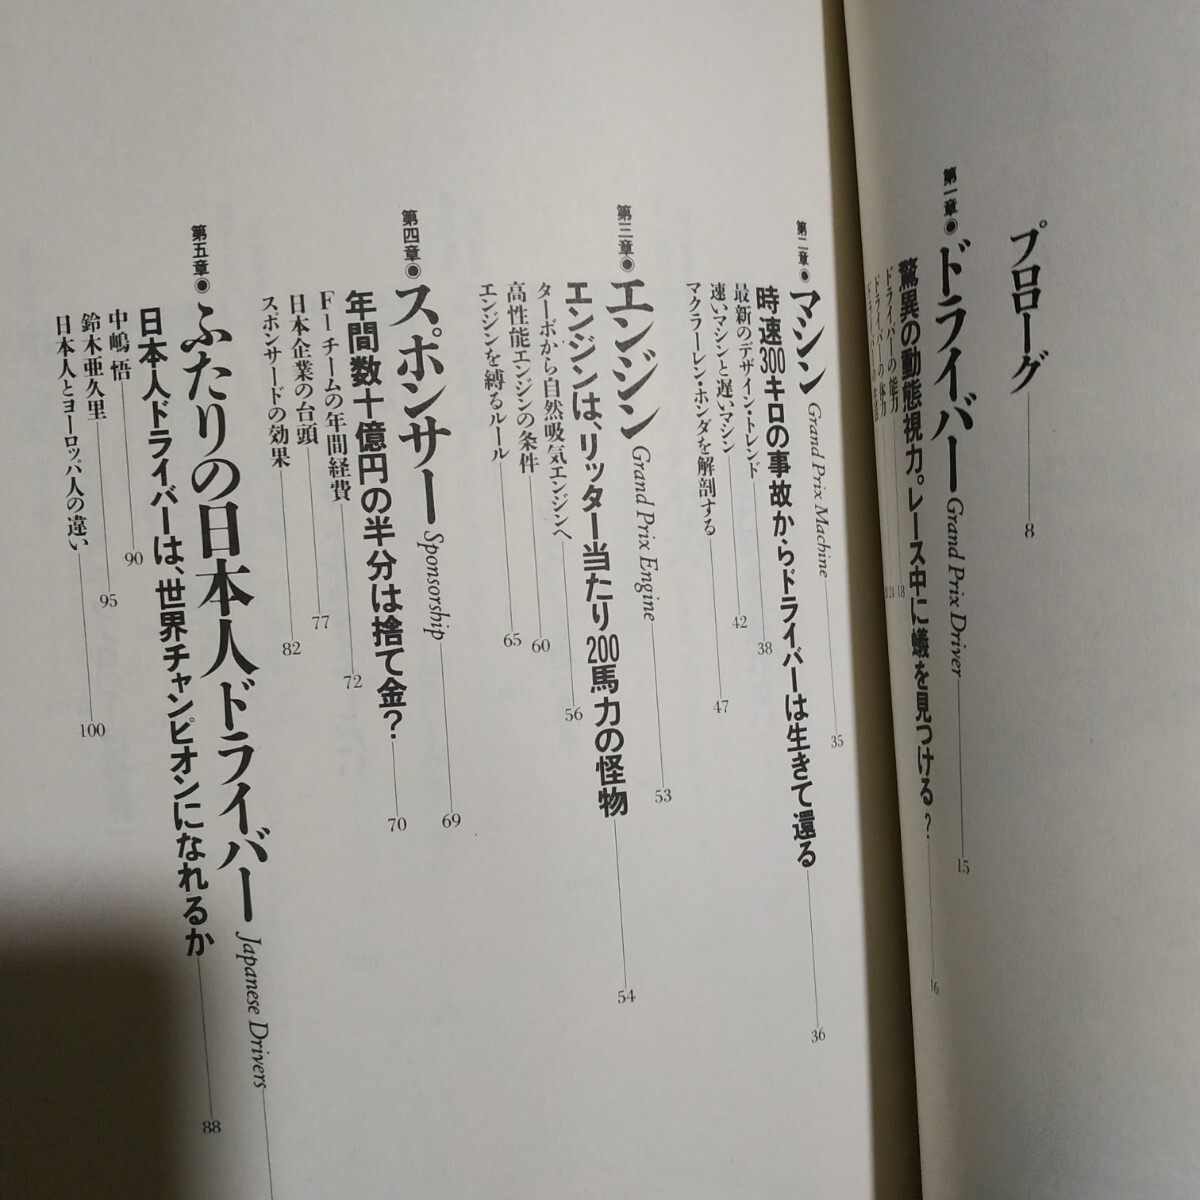 プロローグ 8
第一章●ドライバー Grand Prix Driver 15
驚異の動態視力。レース中に蟻を見つける? 16
ドライバーの能力 18
ドライバーの体力
第二章●マシン Grand Prix Machine 35
時速300キロの事故からドライバーは生きて還る 36
最新のデザイン・トレンド 38
速いマシンと遅いマシン 42
マクラーレン・ホンダを解剖する 47
第三章●エンジン Grand Prix Engine 53
エンジンは、リッター当たり200馬力の怪物 54
ターボから自然吸気エンジンへ 56
高性能エンジンの条件 60
エンジンを縛るルール 65
第四章●スポンサー Sponsorship 69
年間数十億円の半分は捨て金? 70
F1チームの年間経費 72
日本企業の台頭 77
スポンサードの効果 82
第五章●ふたりの日本人ドライバー Japanese Drivers
日本人ドライバーは、世界チャンピオンになれるか 88
中嶋 悟 90
鈴木亜久里 95
日本人とヨーロッパ人の違い 100